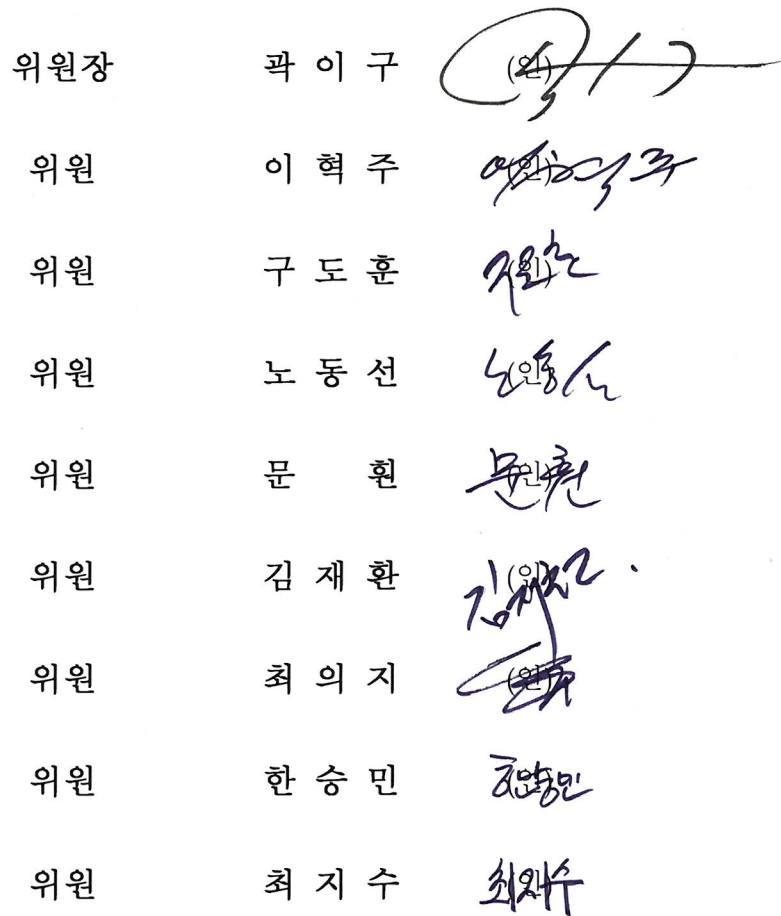 위원장 곽 이 구 (인)
위원 이 혁 주 (인)
위원 구 도 훈 (인)
위원 노 동 선 (인)
위원 문 훤 (인)
위원 김 재 환 (인)
위원 최 의 지 (인)
위원 한 승 민 (인)
위원 최 지 수 (인)